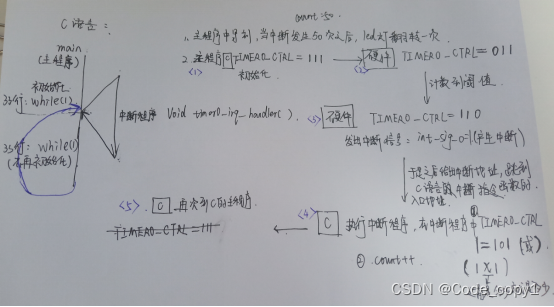 C语言：
count：50
1、主程序中等到，当中断发生50次之后，led灯翻转一次
2、主程序 C TIMER0_CTRL = 111
<1> 初始化
<2> 硬件 TIMER0_CTRL = 011
计数到阈值
main
(主程序)
初始化
35行：while(1)
中断程序 Void timer0_irq_handler( ).
<3> 硬件 TIMER0_CTRL = 110
发出中断信号：int_sig_o=1(产生中断)
35行：while(1)
(不再初始化)
于是之后给出中断地址，跳到
C语言的中断
入口地址
<5>. C 再次到C的主程序.
TIMER0_CTRL = 111
<4> C 执行中断程序，在中断程序中 ① TIMER0_CTRL
|= 101 (或)
② count++
(1X1)
CSDN @Code_copy1